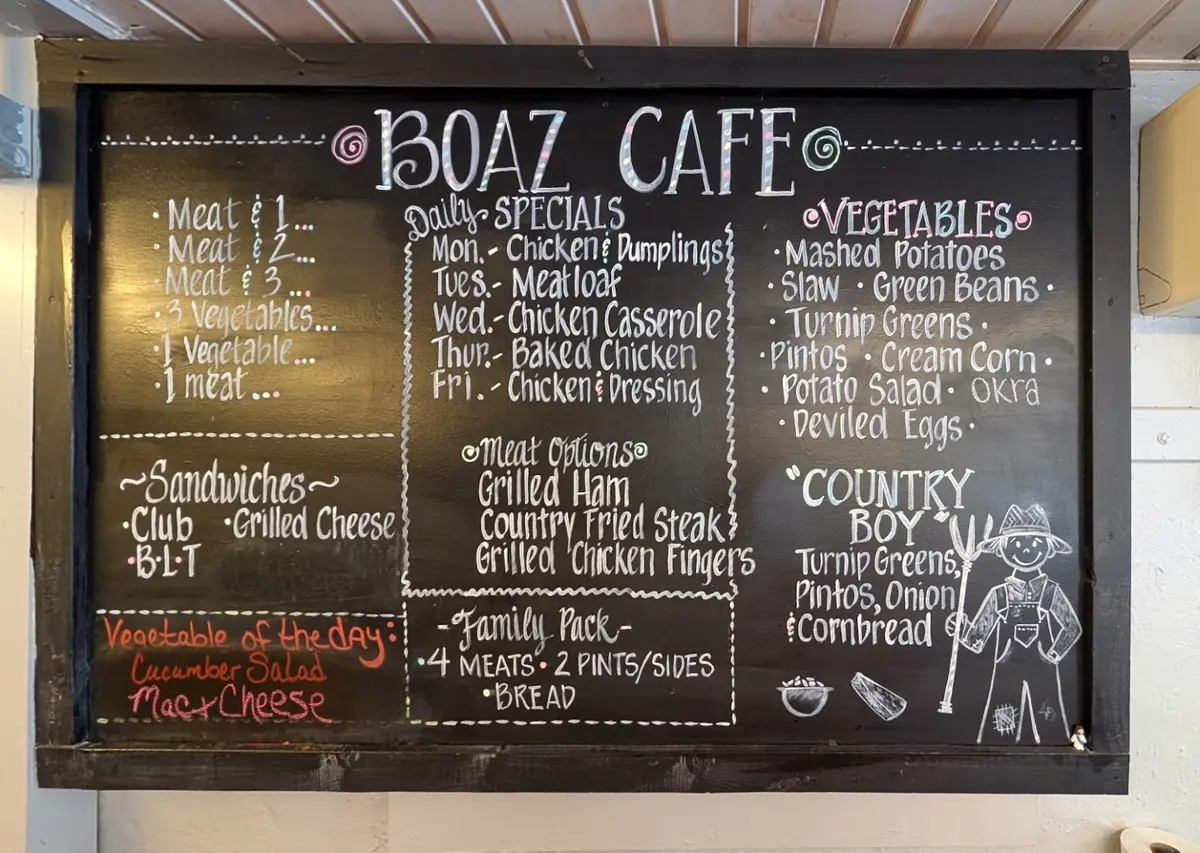 BOAZ CAFE
· Meat & 1...
· Meat & 2...
· Meat & 3...
· 3 Vegetables...
· 1 Vegetable...
· 1 meat...
~Sandwiches~
·Club ·Grilled Cheese
·B·L·T
Vegetable of the day:
Cucumber Salad
Mac + Cheese
Daily SPECIALS
Mon. - Chicken & Dumplings
Tues. - Meatloaf
Wed. - Chicken Casserole
Thur. - Baked Chicken
Fri. - Chicken & Dressing
Meat Options
Grilled Ham
Country Fried Steak
Grilled Chicken Fingers
-Family Pack-
·4 MEATS · 2 PINTS/SIDES
·BREAD
VEGETABLES
· Mashed Potatoes
· Slaw · Green Beans ·
· Turnip Greens ·
· Pintos · Cream Corn ·
· Potato Salad · OKRA
· Deviled Eggs ·
"COUNTRY
BOY"
Turnip Greens,
Pintos, Onion
& Cornbread